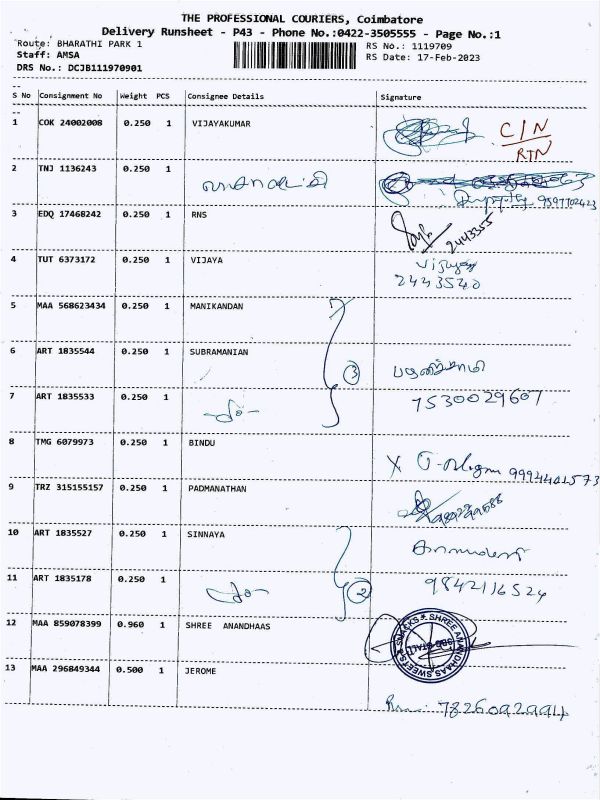 THE PROFESSIONAL COURIERS, Coimbatore
Delivery Runsheet - P43 - Phone No.:0422-3505555 - Page No.:1
Route: BHARATHI PARK 1
RS No.: 1119709
Staff: AMSA
RS Date: 17-Feb-2023
DRS No.: DCJB111970901
S No Consignment No Weight PCS Consignee Details Signature
1 COK 24002008 0.250 1 VIJAYAKUMAR C/N
RTN
2 TNJ 1136243 0.250 1
9597702423
3 EDQ 17468242 0.250 1 RNS 2443355
4 TUT 6373172 0.250 1 VIJAYA
2443540
5 MAA 568623434 0.250 1 MANIKANDAN
6 ART 1835544 0.250 1 SUBRAMANIAN 3 பழனிச்சாமி
7 ART 1835533 0.250 1 7530029607
8 TMG 6079973 0.250 1 BINDU
X 9994401573
9 TRZ 315155157 0.250 1 PADMANATHAN
10 ART 1835527 0.250 1 SINNAYA
11 ART 1835178 0.250 1 2 9842116524
12 MAA 859078399 0.960 1 SHREE ANANDHAAS SHREE ANANDHAAS SWEETS & SNACKS
13 MAA 296849344 0.500 1 JEROME
7826092994